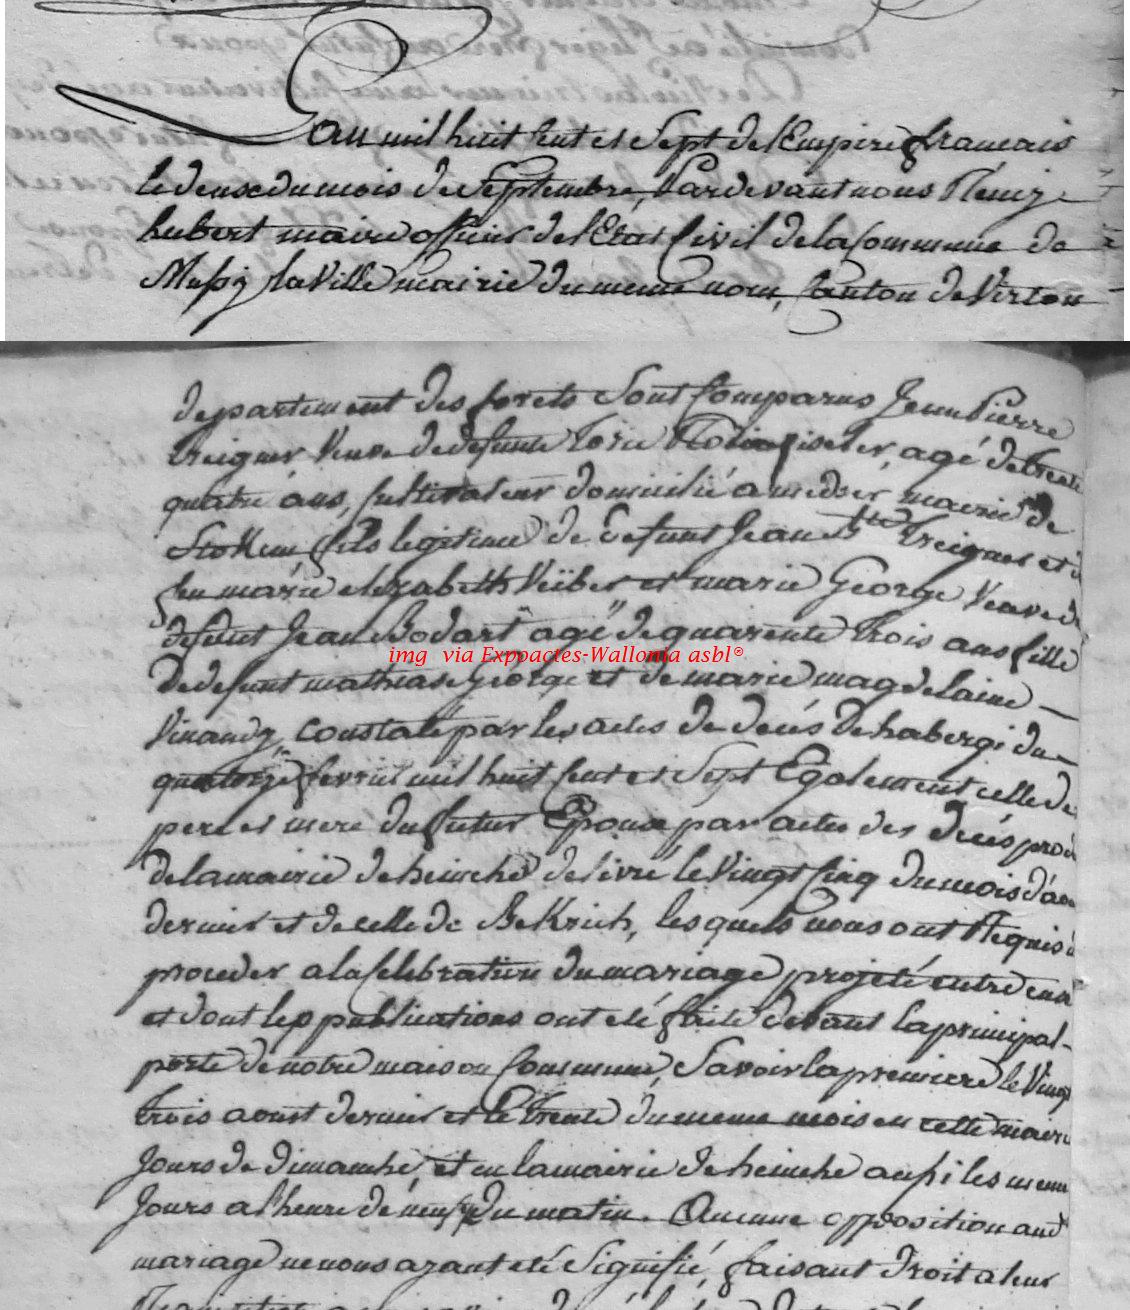 L'an mil huit cent et Sept de l'Empire francais
le deuse du mois de Septembre, Pardevant nous Remij
hubert maire officier de l'Etat Civil de la Commune de
Mussij la Ville mairie du meme nom, Canton de Virton
departement des forets Sont Comparus Jean Pierre
Treigner Veuve de defunte agé de trente
quatre ans, Cultivateur domicilié a mairie de
Stokem fils legitime de defunt Jean Bte Treigner et
feu marie elizabeth Veiber et marie George Veuve de
defunt Jean Bodart agé de quarente trois ans fille
img via Expoactes-Wallonia asbl®
De defunt mathias George et de marie magdelaine
Vinandy, constaté par les actes de deces De habergi du
quatorze fevrier mil huit Cent et Sept Egalement celle de
pere et mere du futur Epoux par actes des deces
de la mairie de heinche delivré le Vingt Cinq du mois d'aou
dernier et de celle de BeKrich, les quels nous ont Requis
proceder a la Celebration du mariage projeté entre eux
et dont les publications ont eté faite devant la principal
porte de notre maison Commune, Savoir la premiere le Vingt
trois aoust dernier et le trente du meme mois en cette mairie
Jours de dimanche, et en la mairie de heinche aussi les meme
Jours a l'heure de neuf du matin. Aucune opposition aud
mariage ne nous ayant eté Signifié, faisant droit a leur